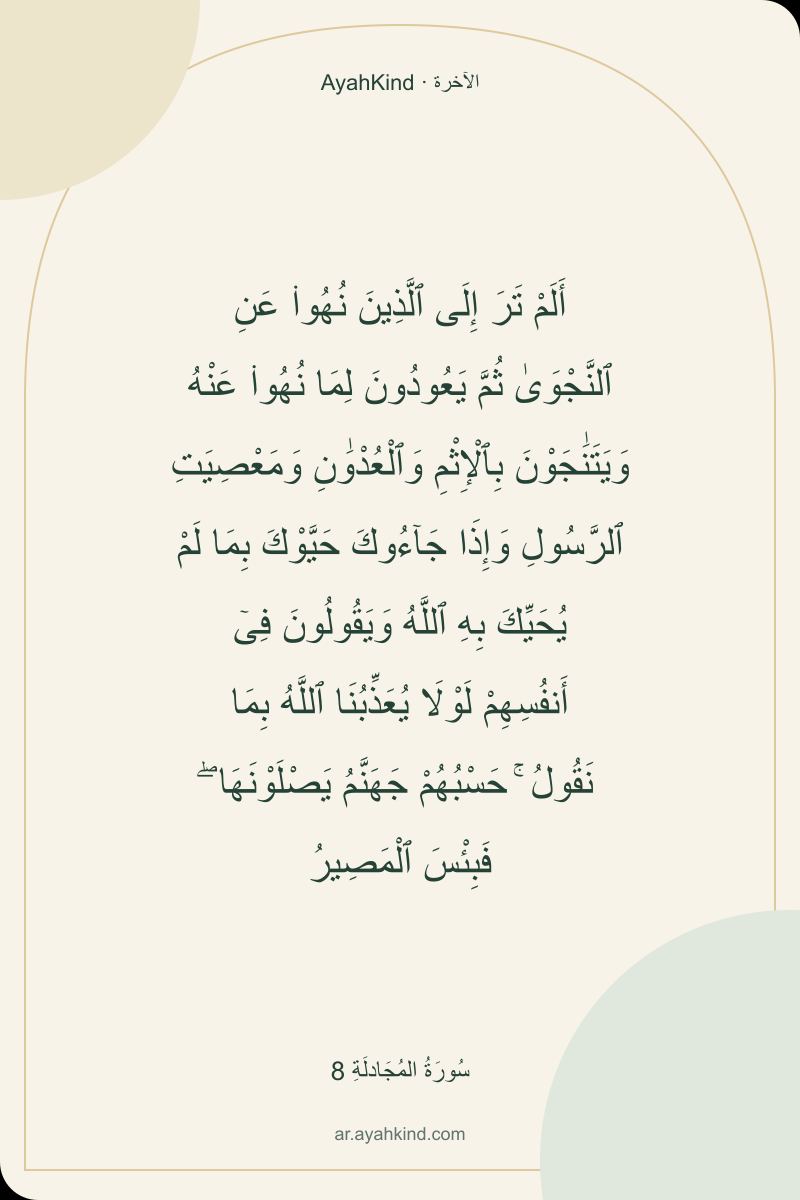 AyahKind · الآخرة
أَلَمْ تَرَ إِلَى ٱلَّذِينَ نُهُوا۟ عَنِ
ٱلنَّجْوَىٰ ثُمَّ يَعُودُونَ لِمَا نُهُوا۟ عَنْهُ
وَيَتَنَٰجَوْنَ بِٱلْإِثْمِ وَٱلْعُدْوَٰنِ وَمَعْصِيَتِ
ٱلرَّسُولِ وَإِذَا جَآءُوكَ حَيَّوْكَ بِمَا لَمْ
يُحَيِّكَ بِهِ ٱللَّهُ وَيَقُولُونَ فِىٓ
أَنفُسِهِمْ لَوْلَا يُعَذِّبُنَا ٱللَّهُ بِمَا
نَقُولُ ۚ حَسْبُهُمْ جَهَنَّمُ يَصْلَوْنَهَا ۖ
فَبِئْسَ ٱلْمَصِيرُ
سُورَةُ المُجَادلَةِ 8
ar.ayahkind.com